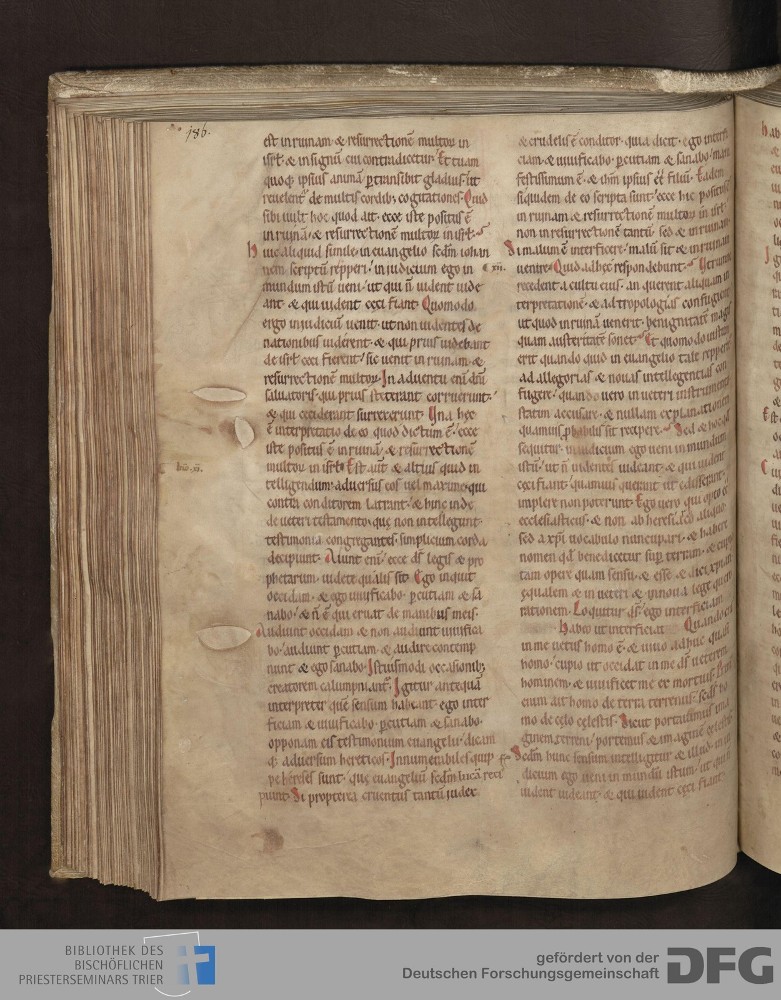 186.
est in ruinam & resurrectionē multoꝝ in
isrł· & in signū cui contradicetur· Et tuam
quoqꝫ ipsius animā ꝑtransibit gladius· ut
reuelent᷑ de multis cordibꝫ cogitationes· Quid
sibi uult hoc quod ait· ecce iste positus ē
in ruinā· & resurrectionē multoꝝ in isrł·
Huic aliquid simile· in euangelio scdm iohan
nem scriptū reꝑperi· in iudicium ego in
mundum istū ueni· ut qui ñ uident uide
ant· & qui uident ceci fiant· Quomodo
ergo in iudiciū uenit· ut non uidentes de
nationibus uiderent· & qui prius uidebant
de isrł ceci fierent· sic uenit in ruinam· &
resurrectionē multoꝝ· In aduentu eni dni
saluatoris· qui prius steterant corruerunt·
& qui ceciderant surrexerunt· Una hęc
ē interpretatio de eo quod dictum ē· ecce
iste positus ē in ruinā· & resurrectionē
multoꝝ in isrł· Est aut & altius quid in
telligendum· aduersus eos uel maxime· qui
contra conditorem latrant· & hinc inde
de ueteri testamento· quę non intellegunt
testimonia congregantes· simplicium corda
decipiunt· Aiunt eni· ecce ds legis & pro
phetarum· uidete qualis sit· Ego inquit
occidam· & ego uiuificabo· ꝑcutiam & sa
nabo· & ñ ē qui eruat de manibus meis·
Audiunt occidam· & non audiunt uiuifica
bo· audiunt ꝑcutiam· & audire contemp
nunt & ego sanabo· Istiusmodi occasionibꝫ
creatorem calumpniant᷑· Igitur antequā
interpreter quē sensum habeant· ego inter
ficiam & uiuificabo· ꝑcutiam & sanabo·
opponam eis testimonium euangelii· dicam
qꝫ aduersum hereticos· Innumerabiles quip
pe hereses sunt· quę euangeliū scdm lucā reci
piunt· Si propterea cruentus tantū iudex
& crudelis ē conditor· quia dicit· ego interfi
ciam· & uiuificabo· ꝑcutiam & sanabo· mani
festissimum ē· & ihm ipsius eē filiū· Eadem
siquidem de eo scripta sunt· ecce hic positus
in ruinam & resurrectionē multoꝝ in isrł·
non in resurrectionē tantū· sed & in ruinam
Si malum ē interficere· malū sit & in ruinam
ꝯ xii.
uenire· Quid ad hęc respondebunt· Utrum
recedent a cultu eius· an querent aliquam in
terpretationē· & ad tropologias confugient
ut quod in ruinā uenerit· benignitatē magis
quam austeritatē sonet· Et quomodo iustum
erit quando quid in euangelio tale reppererint
ad allegorias· & nouas intellegentias con
fugere· quando uero in ueteri instrumento
statim accusare· & nullam explanationem
quamuis ꝓbabilis sit recipere· Sed & hoc qd
sequitur· in iudicium ego ueni in mundum
istū· ut ñ uidentes uideant· & qui uident
ceci fiant· quamuis querant ut edisserant·
implere non poterunt· Ego uero qui opto ee
ecclesiasticus· & non ab heresiarcha aliquo
sed a xpi uocabulo nuncupari· & habere
nomen qd benedicetur suꝑ terram· & cupio
tam opere quam sensu· & esse & dici xpian
ęqualem & in ueteri & in noua lege quero
rationem· Loquitur ds· ego interficiam·
Habeo ut interficiat· Quando
in me uetus homo ē· & uiuo adhuc quasi
homo· cupio ut occidat in me ds ueterem
hominem· & uiuificet me ex mortuis· Prim
enim ait homo de terra terrenus· scds ho
mo de cęlo cęlestis· Sicut portauimus ima
ginem terreni· portemus & imaginē cęlestis
Scdm hunc sensum intelligitur & illud· in iu
dicium ego ueni in mundū istum· ut qui ñ
uident uideant· & qui uident ceci fiant·
BIBLIOTHEK DES
BISCHÖFLICHEN
PRIESTERSEMINARS TRIER
gefördert von der
Deutschen Forschungsgemeinschaft
DFG